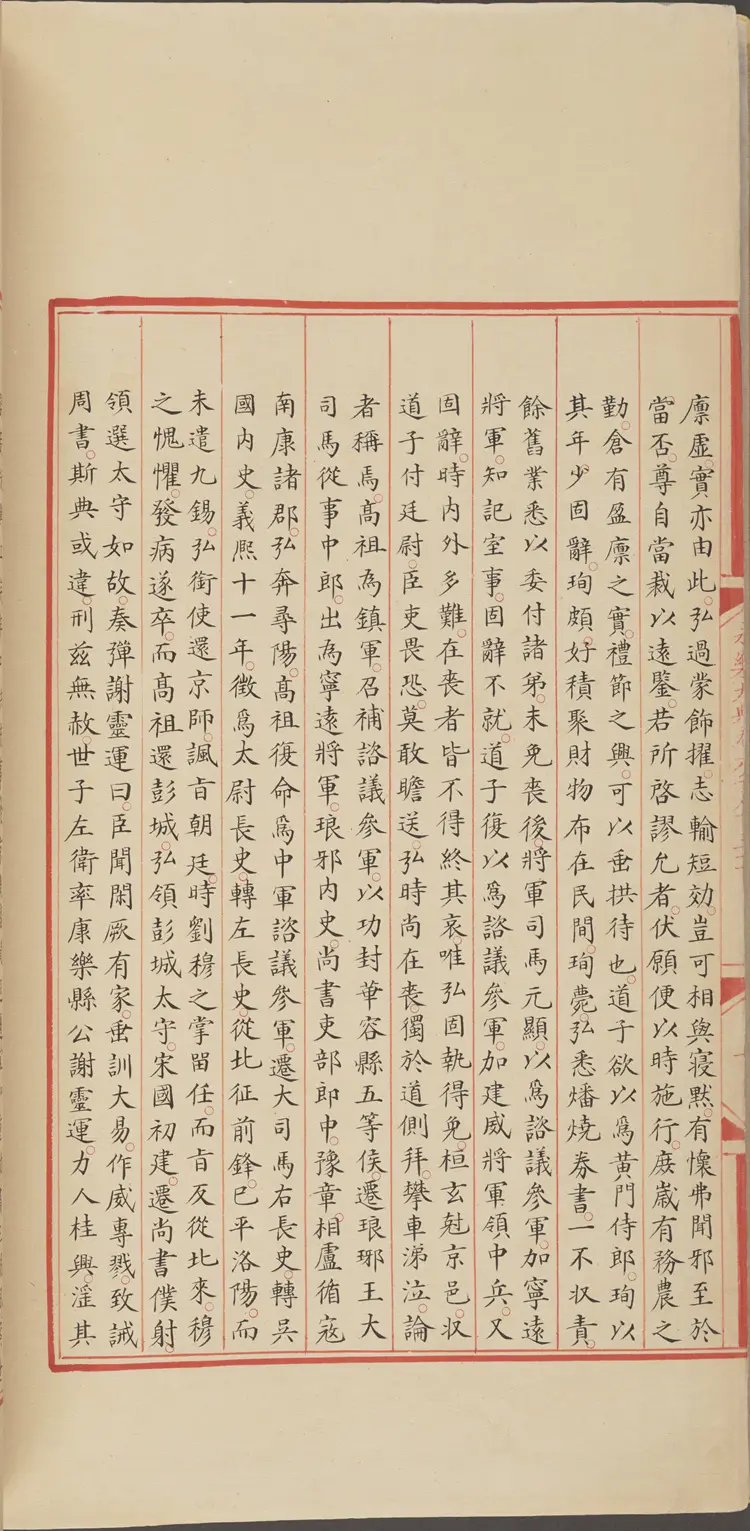 廪虛實亦由此。弘過蒙飾擢。志輸短効。豈可相與寢默。有懷弗聞邪至於
當否。尊自當裁以遠鑒。若所啓謬允者。伏願便以時施行。庶歲有務農之
勤。倉有盈廪之實。禮節之興。可以垂拱待也。道子欲以爲黃門侍郎。珣以
其年少固辭。珣頗好積聚財物布在民間。珣薨。弘悉燔燒券書。一不収責。
餘舊業悉以委付諸弟。未免喪後。將軍司馬元顯。以爲諮議參軍。加寧遠
將軍。知記室事。固辭不就。道子復以爲諮議參軍。加建威將軍領中兵。又
固辭。時内外多難。在喪者皆不得終其哀。唯弘固執得免。桓玄尅京邑。収
道子付廷尉。臣吏畏恐。莫敢瞻送。弘時尚在喪。獨於道側拜。攀車涕泣。論
者稱焉。髙祖為鎮軍。召補諮議參軍。以功封華容縣五等侯。遷琅琊王大
司馬從事中郎。出為寧遠將軍。琅邪内史。尚書吏部郎中。豫章相。盧循寇
南康諸郡。弘奔尋陽。髙祖復命爲中軍諮議參軍。遷大司馬右長史。轉吴
國内史。義熈十一年。徴爲太尉長史。轉左長史。從北征前鋒。已平洛陽。而
未遣九錫。弘銜使還京師。諷旨朝廷。時劉穆之掌留任。而旨反從北來。穆
之愧懼。發病遂卒。而髙祖還彭城。弘領彭城太守。宋國初建。遷尚書僕射。
領選太守如故。奏彈謝靈運曰。臣聞閑厥有家。垂訓大易。作威專戮。致誡
周書。斯典或違。刑兹無赦。世子左衛率康樂縣公謝靈運。力人桂興。淫其